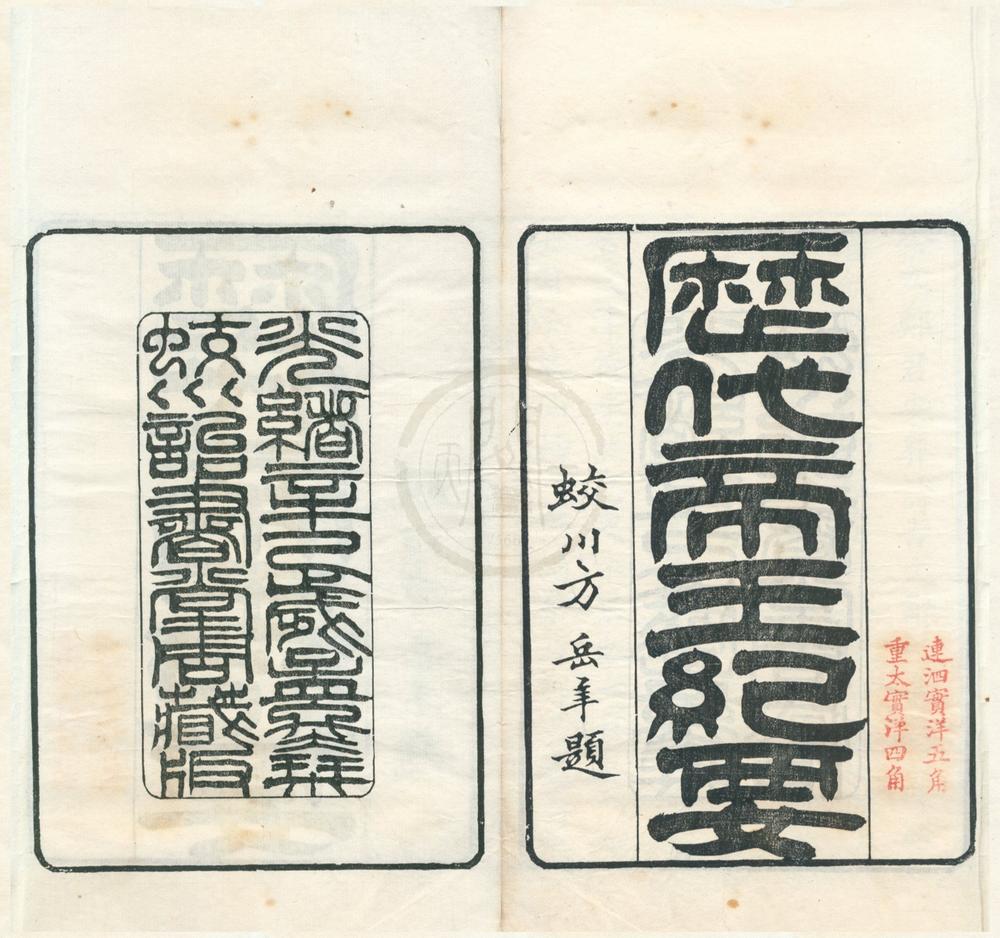 連泗實洋五角
重太實洋四角
歷代帝王紀要
蛟川方岳年題
光緒辛巳歲孟栞
蛟川詒書堂周藏版